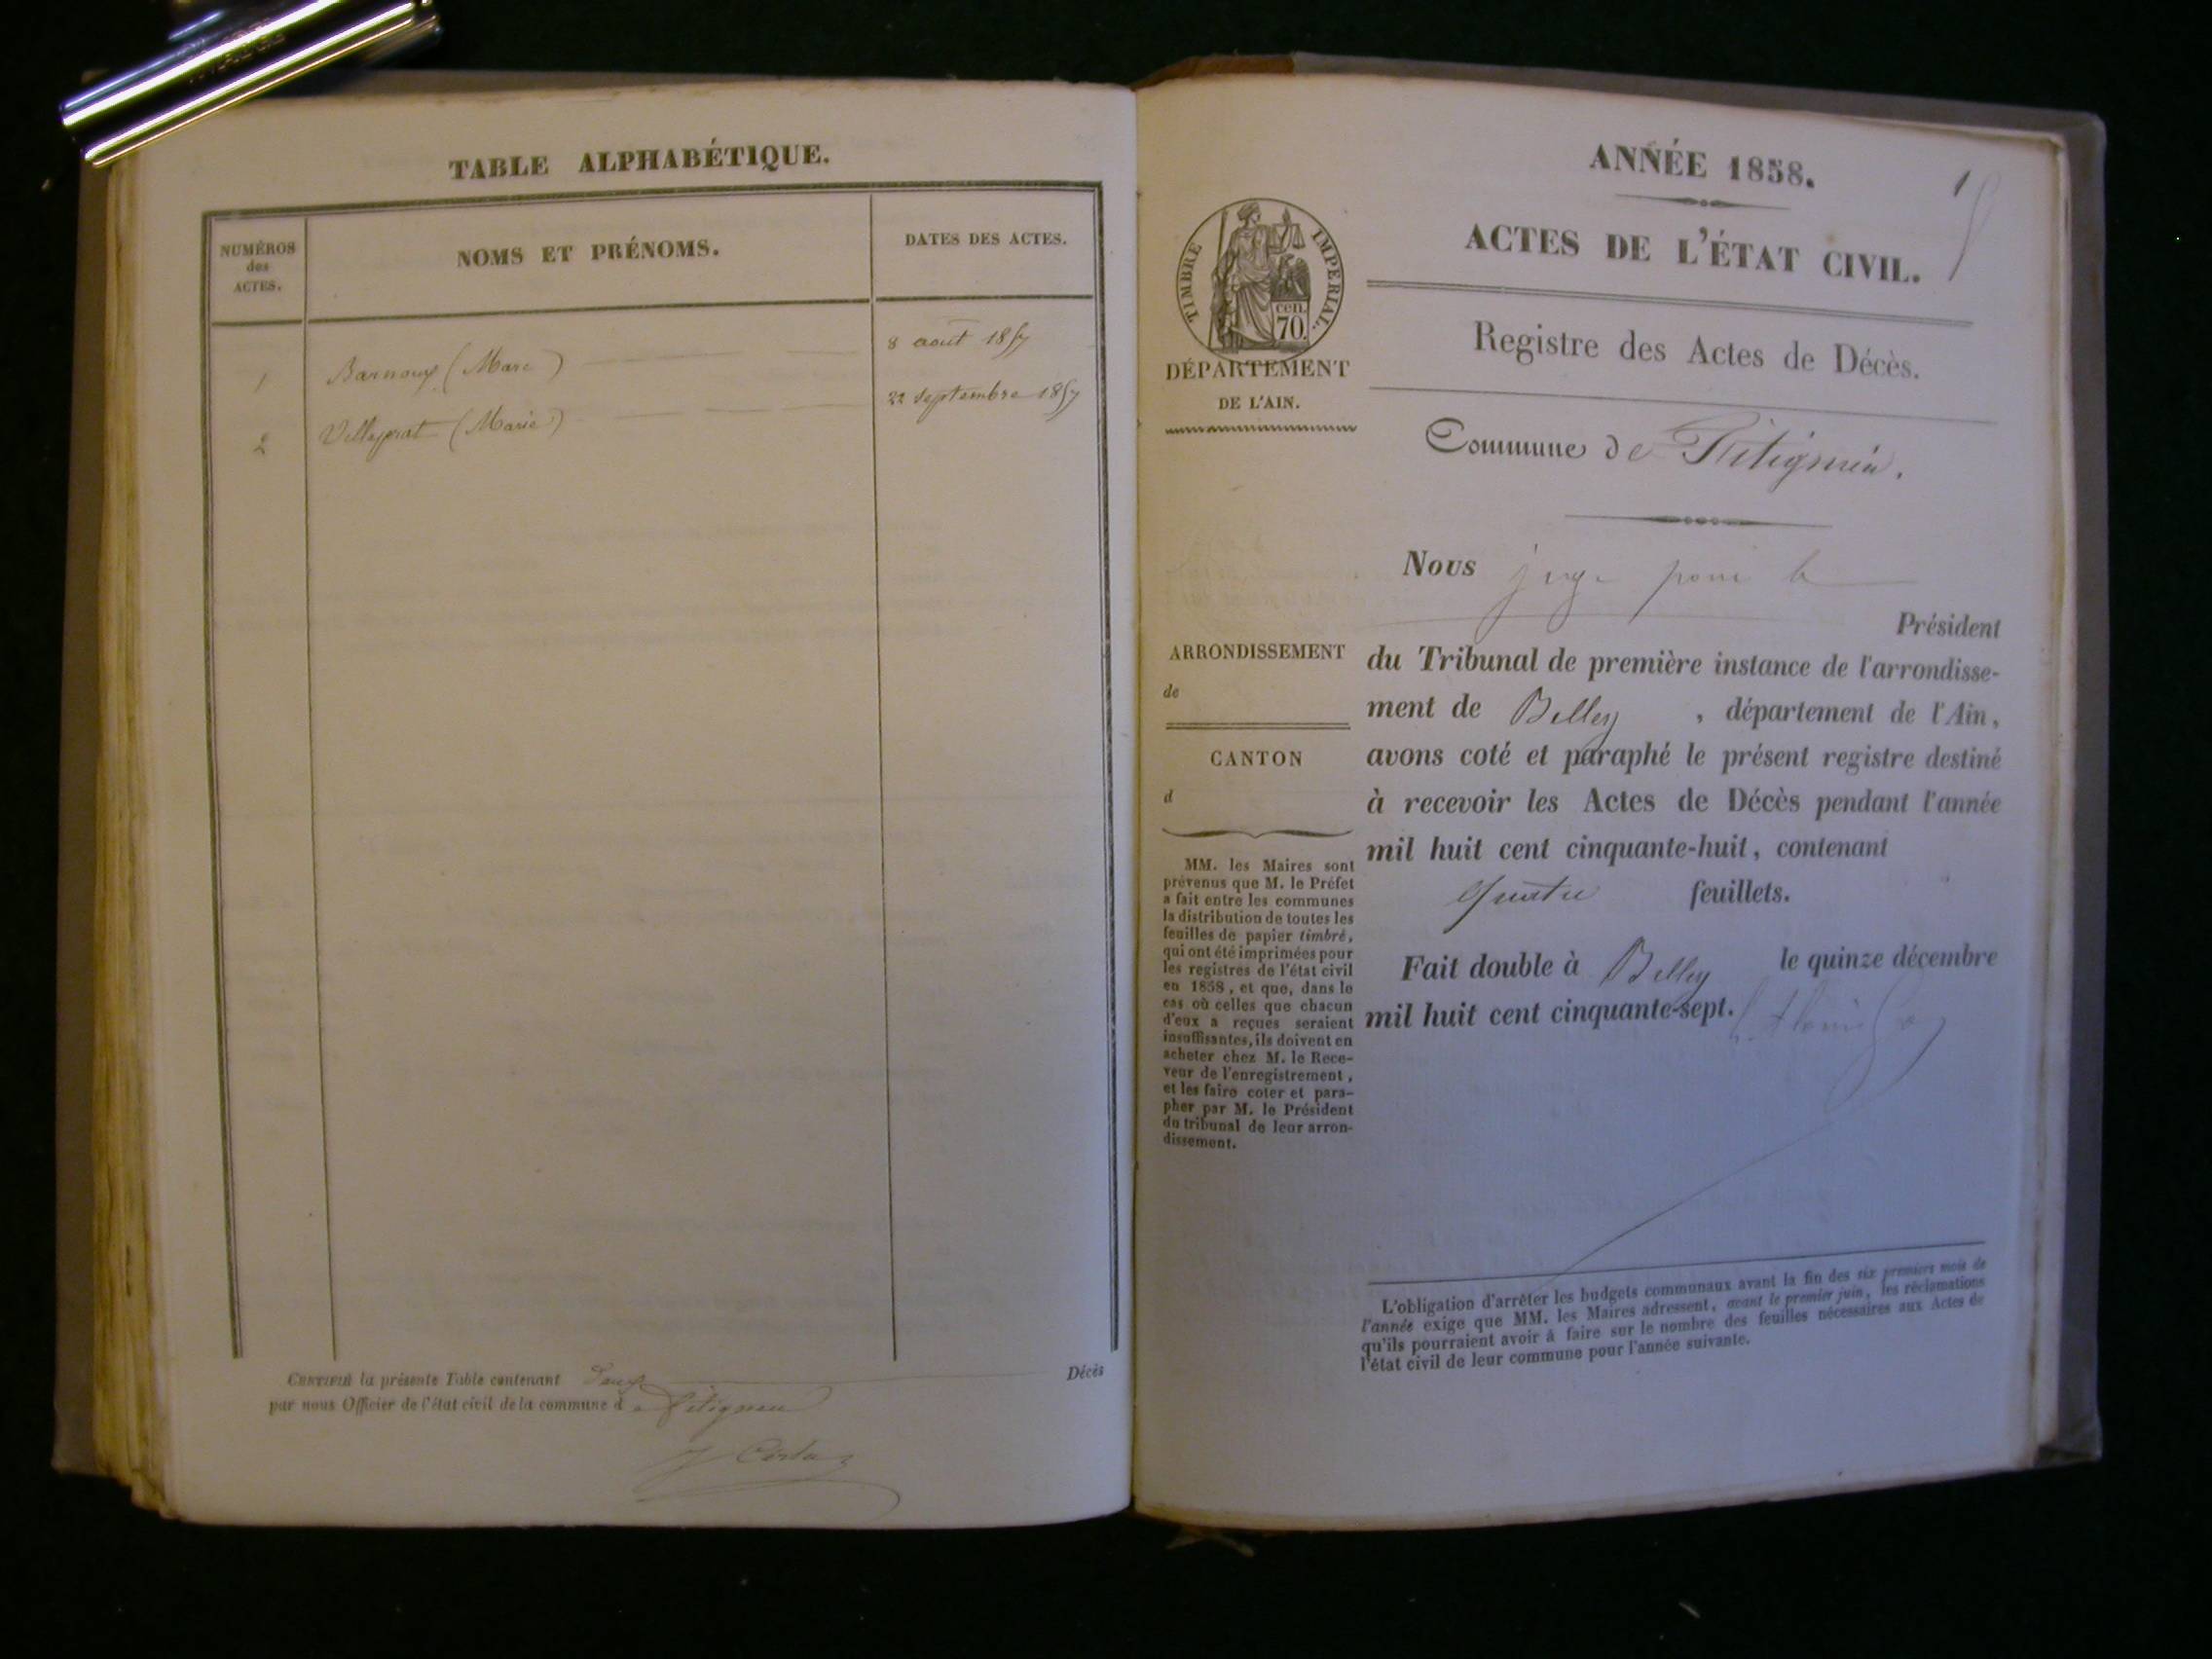 TABLE ALPHABÉTIQUE.
NUMÉROS
des
ACTES.
NOMS ET PRÉNOMS.
DATES DES ACTES.
1 Barnoux (Marc) 8 aout 1857
2 Villeprat (Marie) 22 septembre 1857
CERTIFIÉ la présente Table contenant Deux Décès
par nous Officier de l'état civil de la commune de Pitignieu
ANNÉE 1858.
1
ACTES DE L'ÉTAT CIVIL.
TIMBRE IMPERIAL.
cen.
70.
DÉPARTEMENT
DE L'AIN.
Registre des Actes de Décès.
Commune de Pitignieu.
ARRONDISSEMENT
de
CANTON
d
MM. les Maires sont
prévenus que M. le Préfet
a fait entre les communes
la distribution de toutes les
feuilles de papier timbré,
qui ont été imprimées pour
les registres de l'état civil
en 1858, et que, dans le
cas où celles que chacun
d'eux a reçues seraient
insuffisantes, ils doivent en
acheter chez M. le Rece-
veur de l'enregistrement,
et les faire coter et para-
pher par M. le Président
du tribunal de leur arron-
dissement.
Nous juge pour le
Président
du Tribunal de première instance de l'arrondisse-
ment de Belley, département de l'Ain,
avons coté et paraphé le présent registre destiné
à recevoir les Actes de Décès pendant l'année
mil huit cent cinquante-huit, contenant
quatre feuillets.
Fait double à Belley le quinze décembre
mil huit cent cinquante-sept.
L'obligation d'arrêter les budgets communaux avant la fin des six premiers mois de
l'année exige que MM. les Maires adressent, avant le premier juin, les réclamations
qu'ils pourraient avoir à faire sur le nombre des feuilles nécessaires aux Actes de
l'état civil de leur commune pour l'année suivante.